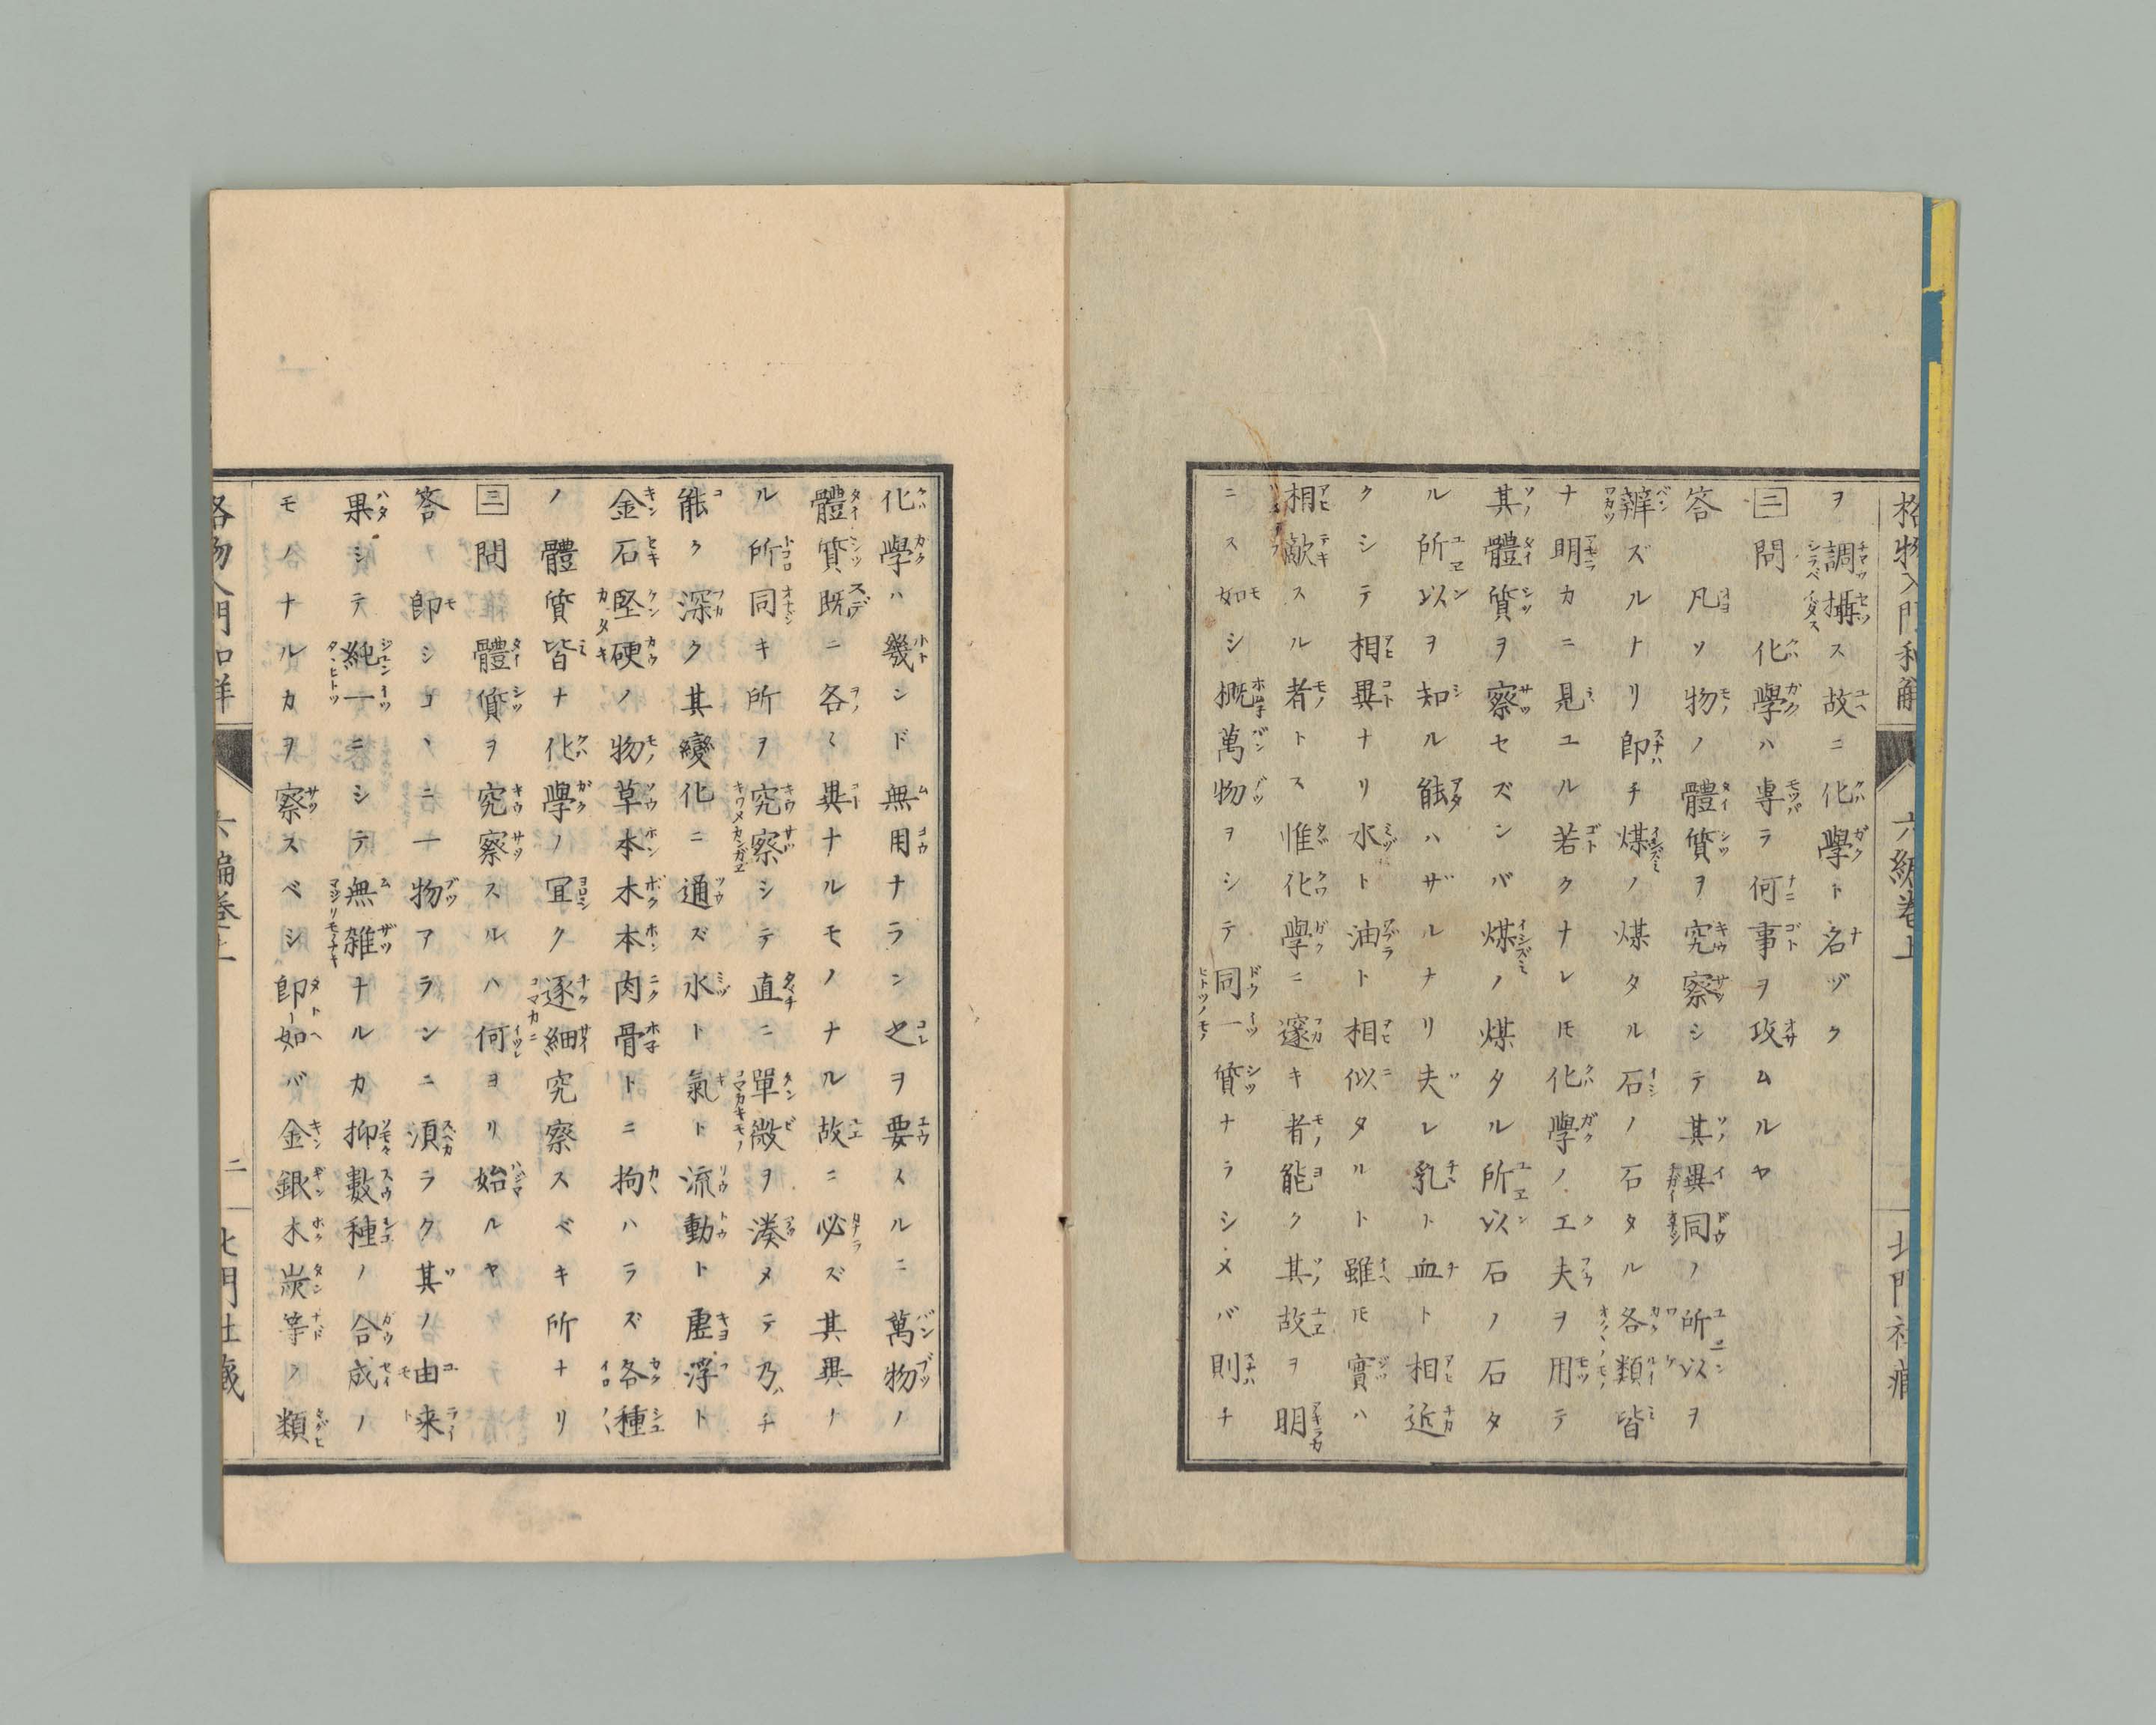 格物入門和解
六編巻上
北門社蔵
ヲ調攝ス故ニ化學ト名ヅク
二 問 化學ハ専ラ何事ヲ攻ムルヤ
答 凡ソ物ノ體質ヲ究察シテ其異同ノ所以ヲ
辨ズルナリ即チ煤ノ煤タル石ノ石タル各類皆
ナ明カニ見ユル若クナレ𪜈化學ノエ夫ヲ用テ
其體質ヲ察セズンバ煤ノ煤タル所以石ノ石タ
ル所以ヲ知ル能ハザルナリ夫レ乳ト血ト相近
クシテ相異ナリ水ト油ト相似タルト雖𪜈實ハ
相敵スル者トス惟化學ニ邃キ者能ク其故ヲ明
ニス如シ概萬物ヲシテ同一質ナラシメバ則チ
化學ハ幾ンド無用ナラン之ヲ要スルニ萬物ノ
體質既ニ各々異ナルモノナル故ニ必ズ其異ノ
ル所同キ所ヲ究察シテ直ニ單微ヲ湊メテ乃チ
能ク深ク其變化ニ通ズ水ト氣ト流動ト虚浮ト
金石堅硬ノ物草本木本肉骨トニ拘ハラズ各種
ノ體質皆ナ化學ノ冝ク逐細究察スベキ所ナリ
三 問 體質ヲ究察スルハ何ヨリ始ルヤ
答 即シコヽニ一物アランニ湏ラク其ノ由来
果シテ純一ニシテ無雑ナルカ抑數種ノ合成ノ
モノナルカヲ察スベシ即如バ金銀木炭等ノ類
格物入門和解
六編巻上
二
北門社蔵